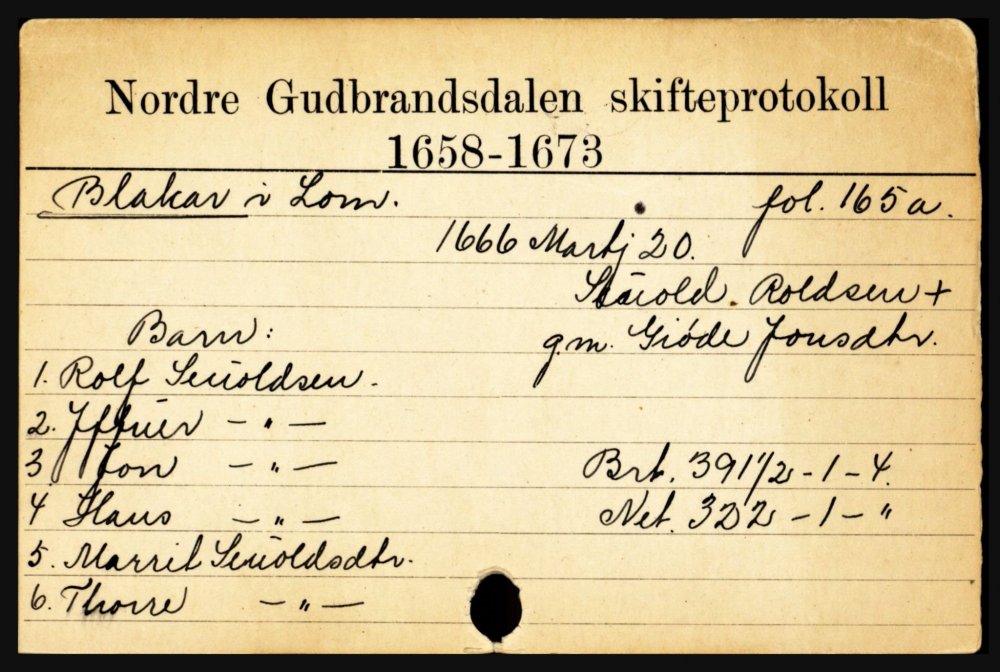 Nordre Gudbrandsdalen skifteprotokoll
1658-1673
Blakar i Lom. fol. 165a.
1666 Martj 20.
Roldsen +
Barn: g.m. Giøde Jonsdtr.
1. Rolf Seuoldsen.
2. — " —
3 Jon — " —
4 Hans — " —
5. Marrit Seuoldsdtr.
6. Thorre — " —
Brt. 391 1/2 - 1 - 4.
Net. 322 - 1 - "